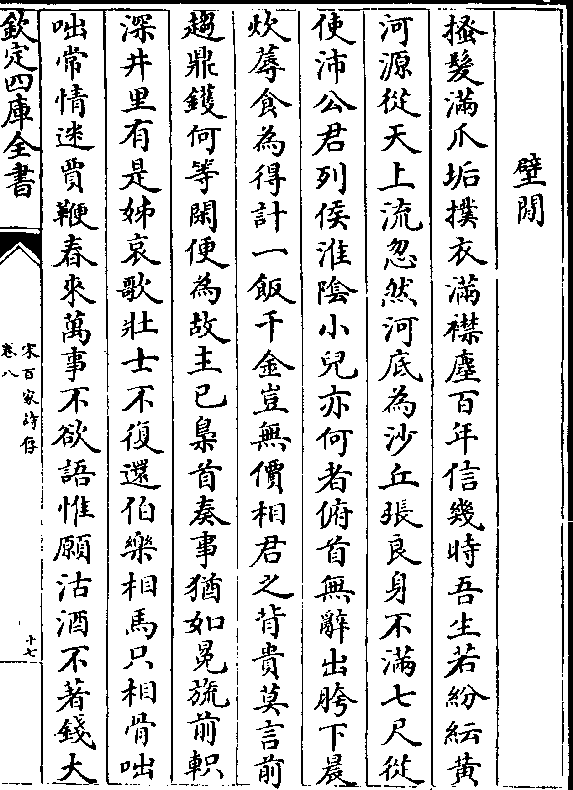 壁間
搔髮滿爪垢撲衣滿襟塵百年信幾時吾生若紛紜黄
河源從天上流忽然河底為沙丘張良身不滿七尺從
使沛公君列侯淮陰小兒亦何者俯首無辭出胯下晨
炊蓐食為得計一飯千金豈無價相君之背貴莫言前
趨鼎鑊何等閑便為故主已梟首奏事猶如冕旒前軹
深井里有是姊哀歌壯士不復還伯樂相馬只相骨咄
咄常情迷賈鞭春來萬事不欲語惟願沽酒不著錢大
欽定四庫全書
宋百家詩存
卷八
十七